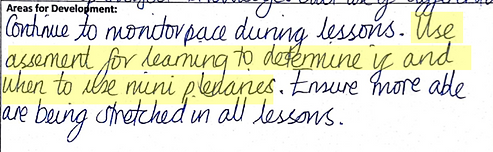 Areas for Development:
Continue to monitor pace during lessons. Use
assement for learning to determine if and
when to use mini plenaries. Ensure more able
are being stretched in all lessons.